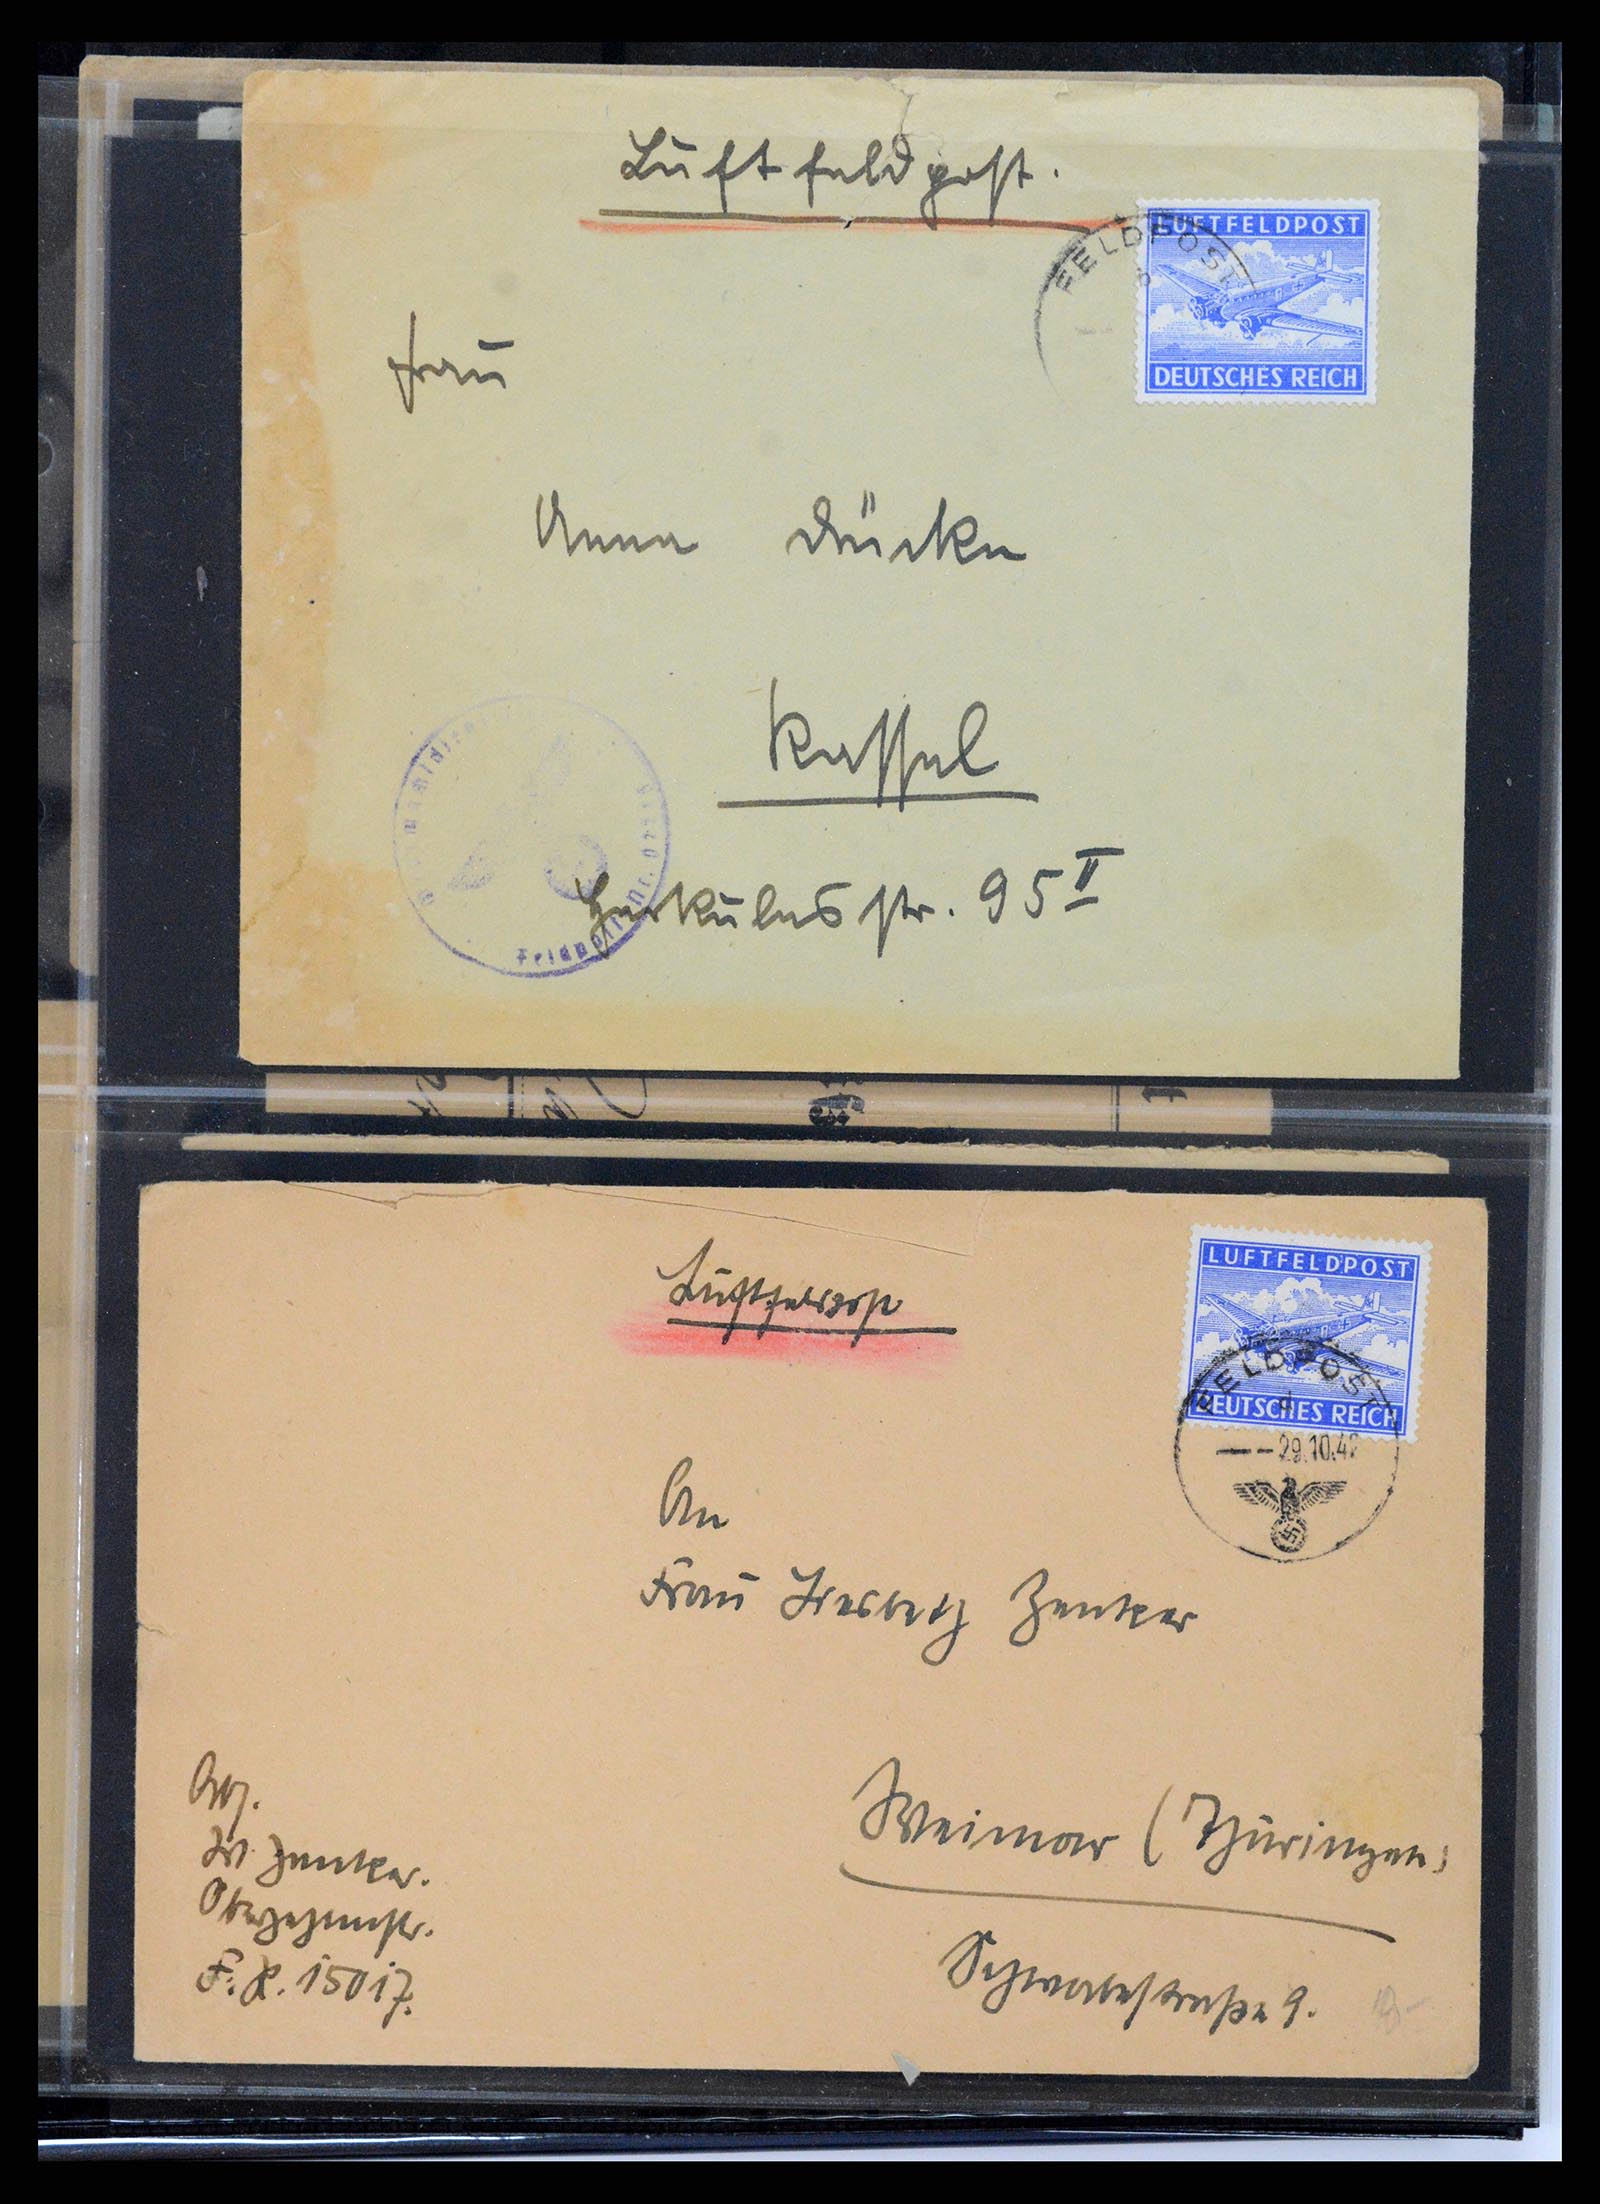 Luftfeldpost.
LUFTFELDPOST
DEUTSCHES REICH
FELDPOST
Frau
Anna Drücke
Kassel
Herkulesstr. 95 II
Feldpost Nr.
Luftfeldpost
LUFTFELDPOST
DEUTSCHES REICH
FELDPOST
d
29.10.42
An
Frau Zenker
Weimar (Thüringen)
Schwabestraße 9.
Abs.
W. Zenker.
F. P. 15017.